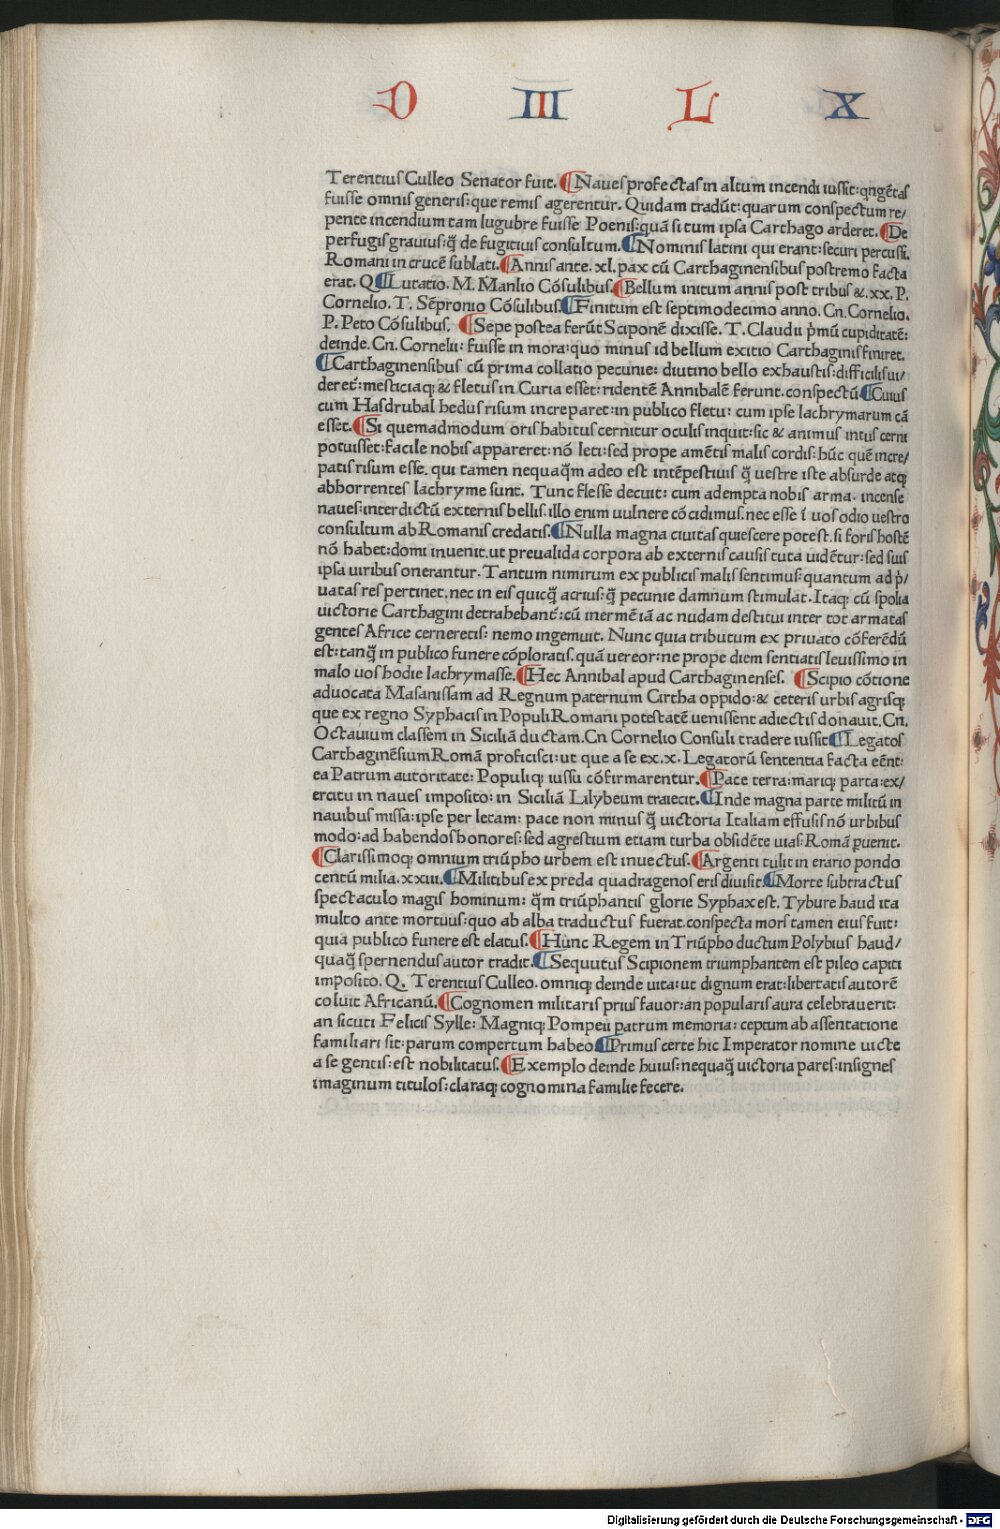 D III L X
Terentius Culleo Senator fuit. ¶Naues profectas in altum incendi iussit: qngẽtas
fuisse omnis generis: que remis agerentur. Quidam tradũt: quarum conspectum re/
pente incendium tam lugubre fuisse Poenis: quã si tum ipsa Carthago arderet. ¶De
perfugis grauius: q̃ de fugitiuis consultum. ¶Nominis latini qui erant: securi percussi.
Romani in crucẽ sublati. ¶Annis ante. xl. pax cũ Carthaginensibus postremo facta
erat. Q ¶Lutatio. M. Manlio Cõsulibus. ¶Bellum initum annis post tribus &. xx. P.
Cornelio. T. Sẽpronio Cõsulibus. ¶Finitum est septimodecimo anno. Cn. Cornelio.
P. Peto Cõsulibus. ¶Sepe postea ferũt Sciponẽ dixisse. T. Claudii p̃mũ cupiditatẽ:
deinde. Cn. Cornelii: fuisse in mora: quo minus id bellum exitio Carthaginis finiret.
¶Carthaginensibus cũ prima collatio pecunie: diutino bello exhaustis: difficilis ui/
deret̃: mesticiaq; & fletus in Curia esset: ridentẽ Annibalẽ ferunt. conspectũ ¶Cuius
cum Hasdrubal hedus risum increparet: in publico fletu: cum ipse lachrymarum cã
esset. ¶Si quemadmodum oris habitus cernitur oculis inquit: sic & animus intus cerni
potuisset: facile nobis appareret: nõ leti: sed prope amẽtis malis cordis: hũc quẽ incre/
patis risum esse. qui tamen nequaq̃m adeo est intẽpestiuis q̃ uestre iste absurde atq;
abhorrentes lachryme sunt. Tunc flesse decuit: cum adempta nobis arma. incense
naues: interdictũ externis bellis. illo enim uulnere cõcidimus. nec esse ĩ uos odio uestro
consultum ab Romanis credatis. ¶Nulla magna ciuitas quiescere potest. si foris hostẽ
nõ habet: domi inuenit. ut preualida corpora ab externis causis tuta uidẽtur: sed suis
ipsa uiribus onerantur. Tantum nimirum ex publicis malis sentimus: quantum ad p̃/
uatas res pertinet. nec in eis quicq̃ acrius: q̃ pecunie damnum stimulat. Itaq; cũ spolia
uictorie Carthagini detrahebant̃: cũ inermẽ iã ac nudam destitui inter tot armatas
gentes Africe cerneretis: nemo ingemuit. Nunc quia tributum ex priuato cõferẽdũ
est: tanq̃ in publico funere cõploratis. quã uereor: ne prope diem sentiatis leuissimo in
malo uos hodie lachrymasse. ¶Hec Annibal apud Carthaginenses. ¶Scipio cõtione
aduocata Masanissam ad Regnum paternum Cirtha oppido: & ceteris urbis agrisq;
que ex regno Syphacis in Populi Romani potestatẽ uenissent adiectis donauit. Cn.
Octauium classem in Siciliã ductam. Cn Cornelio Consuli tradere iussit ¶Legatos
Carthaginẽsium Romã proficisci: ut que a se ex. x. Legatorũ sententia facta eẽnt:
ea Patrum autoritate: Populiq; iussu cõfirmarentur. ¶Pace terra: mariq; parta: ex/
ercitu in naues imposito: in Siciliã Lilybeum traiecit. ¶Inde magna parte militũ in
nauibus missa: ipse per letam: pace non minus q̃ uictoria Italiam effusis nõ urbibus
modo: ad habendos honores: sed agrestium etiam turba obsidẽte uias: Romã puenit.
¶Clarissimoq; omnium triũpho urbem est inuectus. ¶Argenti tulit in erario pondo
centũ milia. xxiii. ¶Militibus ex preda quadragenos eris diuisit ¶Morte subtractus
spectaculo magis hominum: q̃m triũphantis glorie Syphax est. Tybure haud ita
multo ante mortuus: quo ab alba traductus fuerat. conspecta mors tamen eius fuit:
quia publico funere est elatus. ¶Hunc Regem in Triũpho ductum Polybius haud/
quaq̃ spernendus autor tradit. ¶Sequutus Scipionem triumphantem est pileo capiti
imposito. Q. Terentius Culleo. omniq; deinde uita: ut dignum erat: libertatis autorẽ
coluit Africanũ. ¶Cognomen militaris prius fauor: an popularis aura celebrauerit:
an sicuti Felicis Sylle: Magniq; Pompeii patrum memoria: ceptum ab assentatione
familiari sit: parum compertum habeo ¶Primus certe hic Imperator nomine uicte
a se gentis: est nobilitatus. ¶Exemplo deinde huius: nequaq̃ uictoria pares: insignes
imaginum titulos: claraq; cognomina familie fecere.
Digitalisierung gefördert durch die Deutsche Forschungsgemeinschaft - DFG